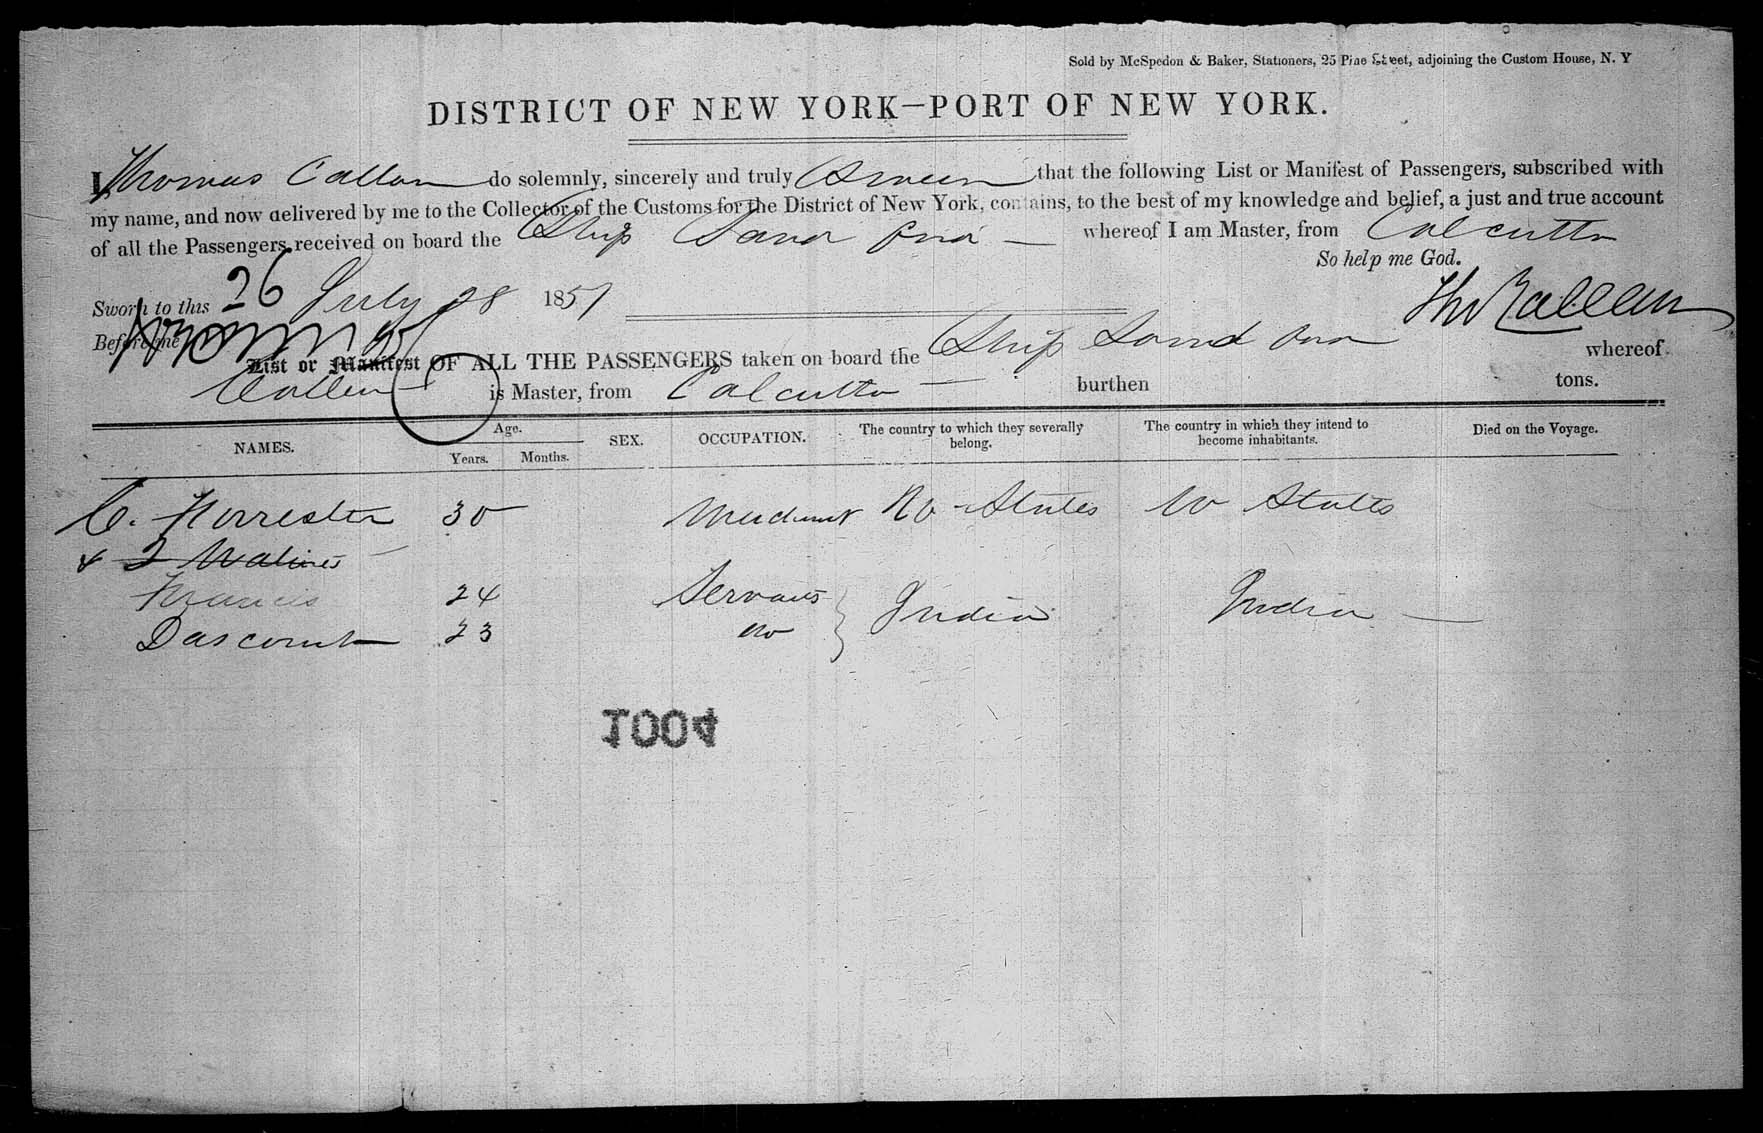 Sold by McSpedon & Baker, Stationers, 25 Pine Street, adjoining the Custom House, N. Y
DISTRICT OF NEW YORK—PORT OF NEW YORK.
I, Thomas Callan do solemnly, sincerely and truly Swear that the following List or Manifest of Passengers, subscribed with
my name, and now delivered by me to the Collector of the Customs for the District of New York, contains, to the best of my knowledge and belief, a just and true account
of all the Passengers received on board the Ship whereof I am Master, from Calcutta
So help me God.
Sworn to this 26 July 28 1857
Before me
List or Manifest OF ALL THE PASSENGERS taken on board the Ship whereof
Callan is Master, from Calcutta burthen tons.
NAMES. Age. Years. Months. SEX. OCCUPATION. The country to which they severally belong. The country in which they intend to become inhabitants. Died on the Voyage.
C. Forrester 30 Merchant States States
& 2 Natives
Francis 24 Servants India India
Dascount 23 do
1004